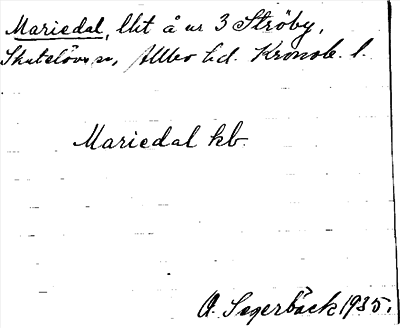 Mariedal, lht å nr 3 Ströby,
Skatelövs sn, Allbo hd. Kronob. l.
Mariedal kb.
A. Segerbäck 1935.